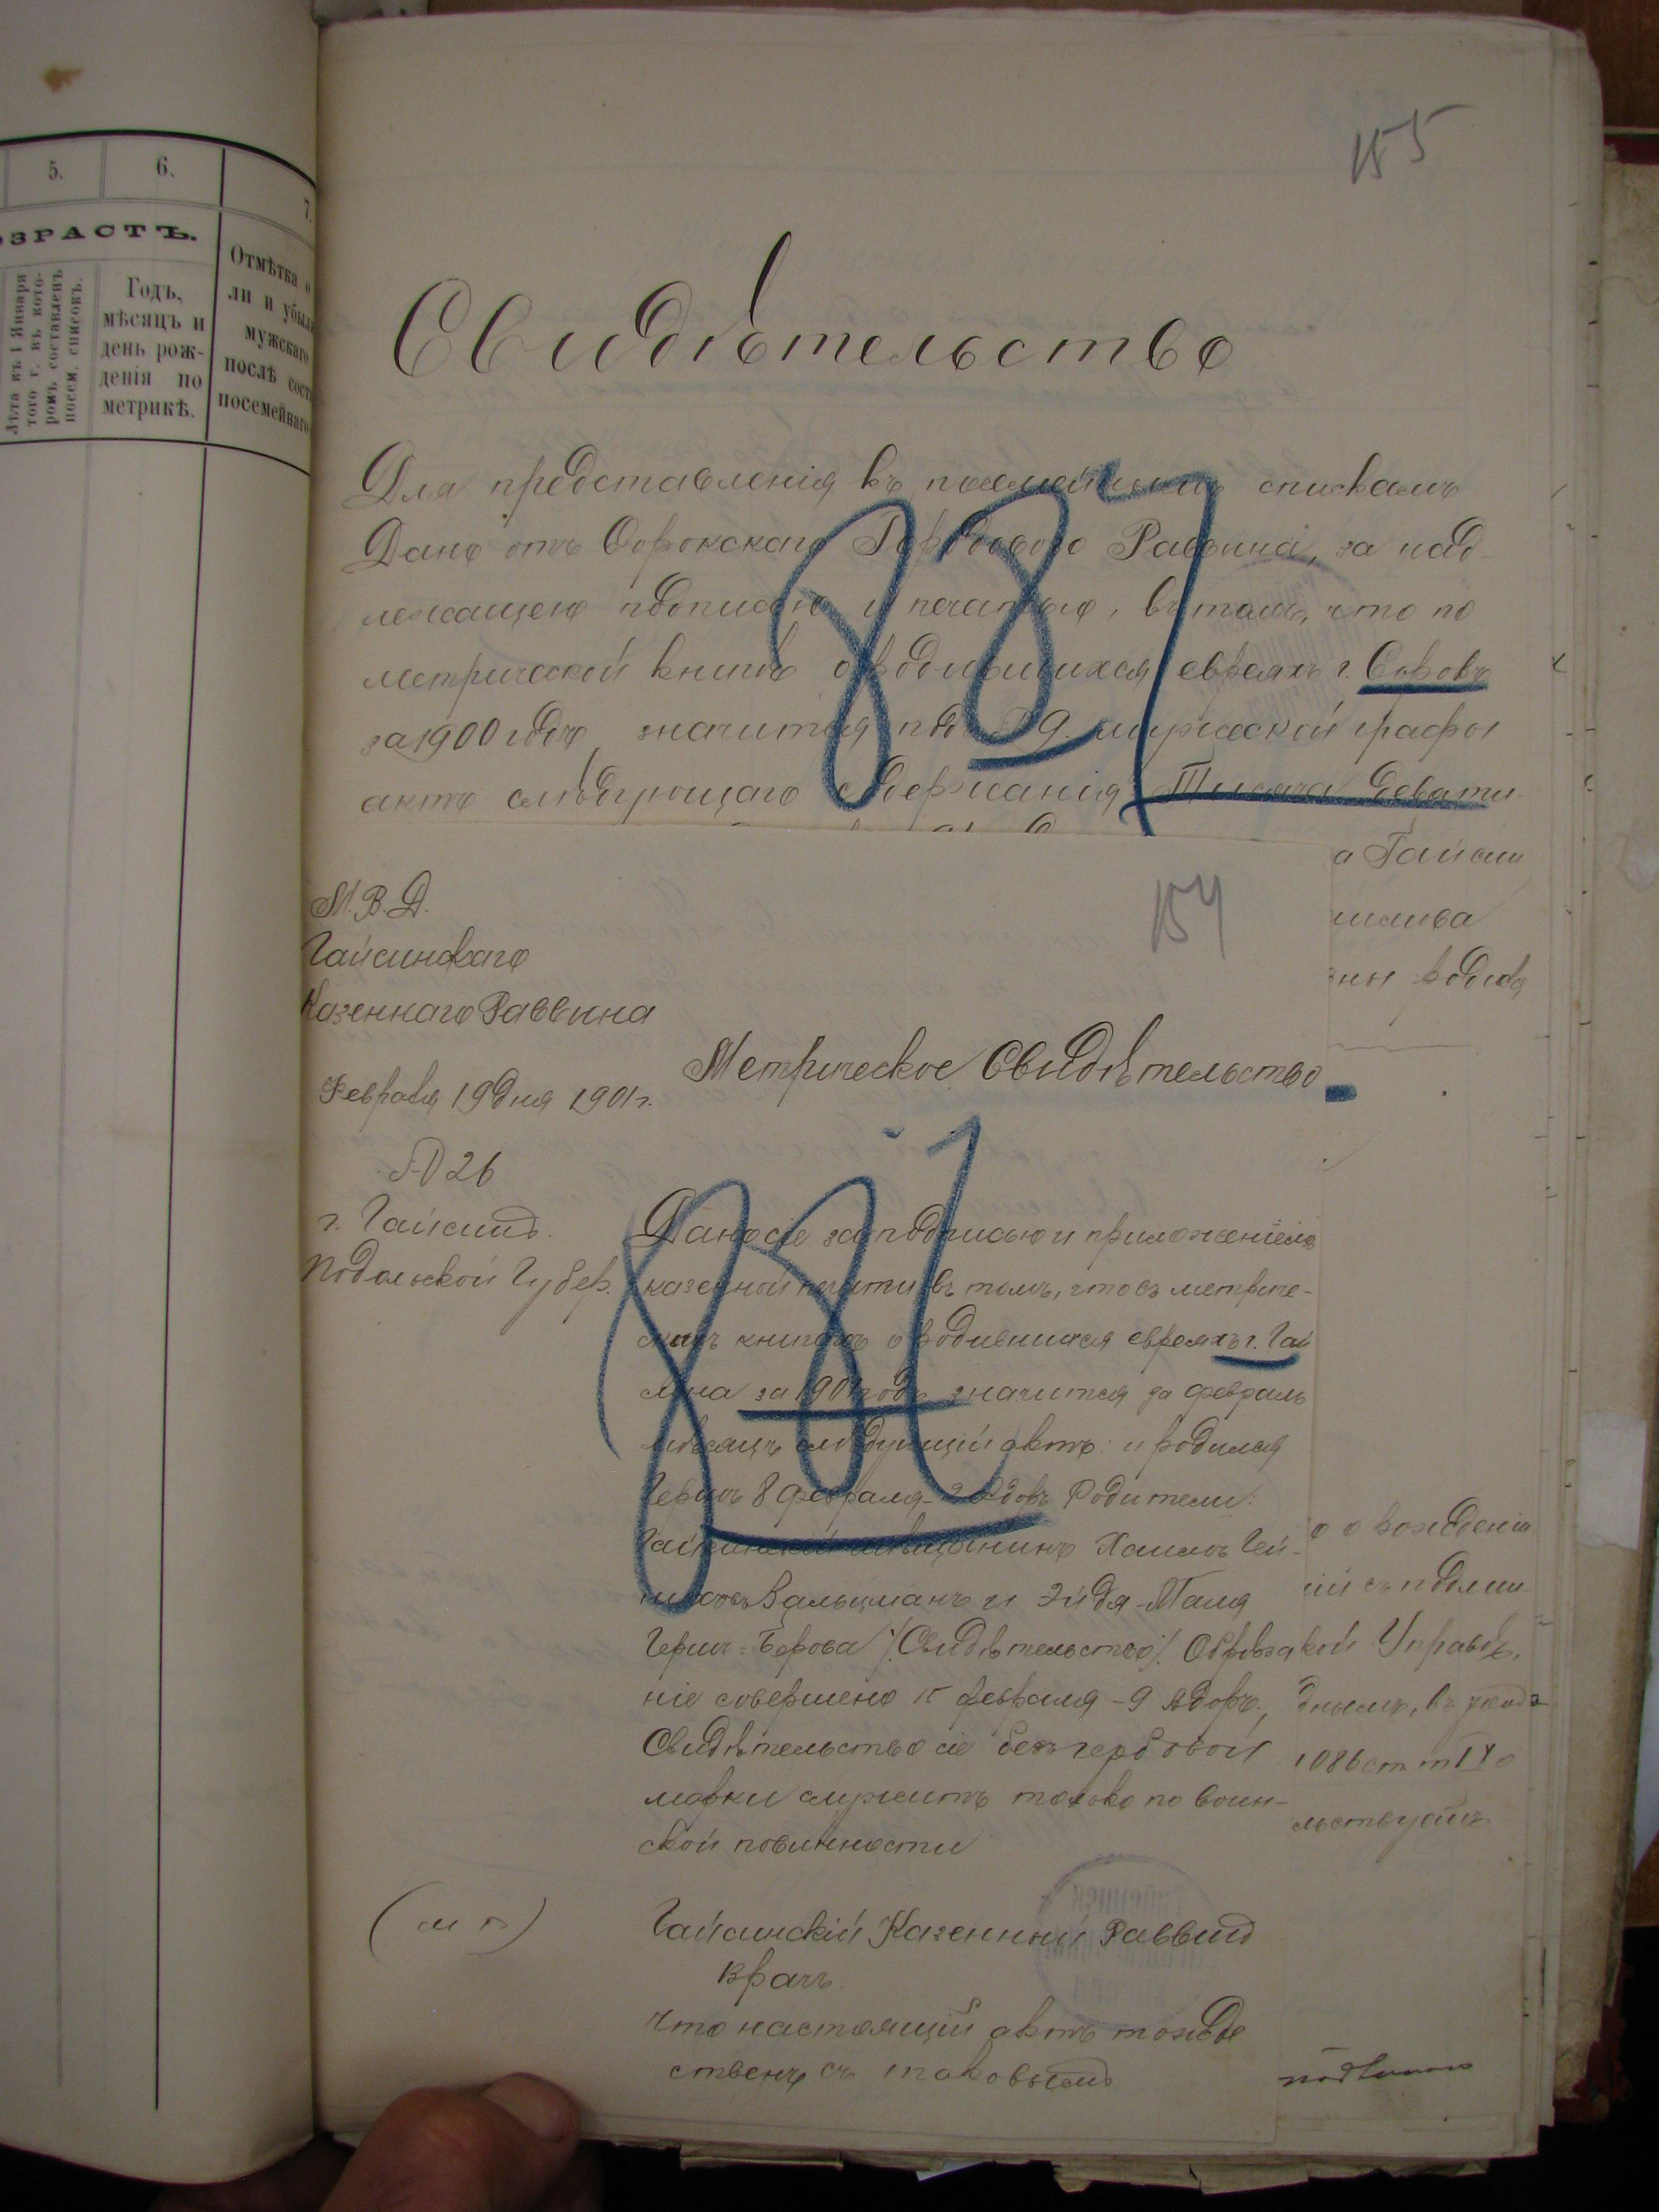 5.
6.
7.
ОЗРАСТЪ.
Лѣта къ 1 Января
того г. въ кото-
ромъ составленъ
посем. списокъ.
Годъ,
мѣсяцъ и
день рож-
денія по
метрикѣ.
Отмѣтка о
ли и убыли
мужскаго
послѣ сост
посемейнаго
155
Свидѣтельство
Для представленія къ посемейнымъ спискамъ
Дано отъ Сорокскаго Городового Раввина, за над-
лежащею подписью и печатью, въ томъ, что по
метрической книгѣ о родившихся евреяхъ г. Сорокъ
за 1900 годъ значится подъ № 9. мужеской графы
актъ слѣдующаго содержанія: Тысяча девяти
887
а Гайсин
ны родился
154
М. В. Д.
Гайсинскаго
Казеннаго Раввина
Февраля 19 дня 1901 г.
№ 26
г. Гайсинъ.
Подольской Губер.
Метрическое Свидѣтельство
881
Дано сіе за подписью и приложеніемъ
казенной печати въ томъ, что въ метриче-
скихъ книгахъ о родившихся евреяхъ г. Гай
сина за 1901 годъ значится за февраль
мѣсяцъ слѣдующій актъ: и родился
Гершъ 8 февраля - 2 Адовъ Родители:
Гайсинскій мѣщанинъ Хаимъ Гей-
Вальцманъ и Эйдя-Маля
Герш-Берова /Свидѣтельство/. Обрѣза
ніе совершено 15 февраля - 9 Адовъ.,
Свидѣтельство сіе безъ гербовой
марки служитъ только по воин-
ской повинности
о о рожденіи
кой Управѣ,
1086 ст. т IX о
льствуетъ
(м п)
Гайсинскій Казенный Раввинъ
Врачъ.
Что настоящій актъ тожде
ственъ съ таковымъ
подлинно